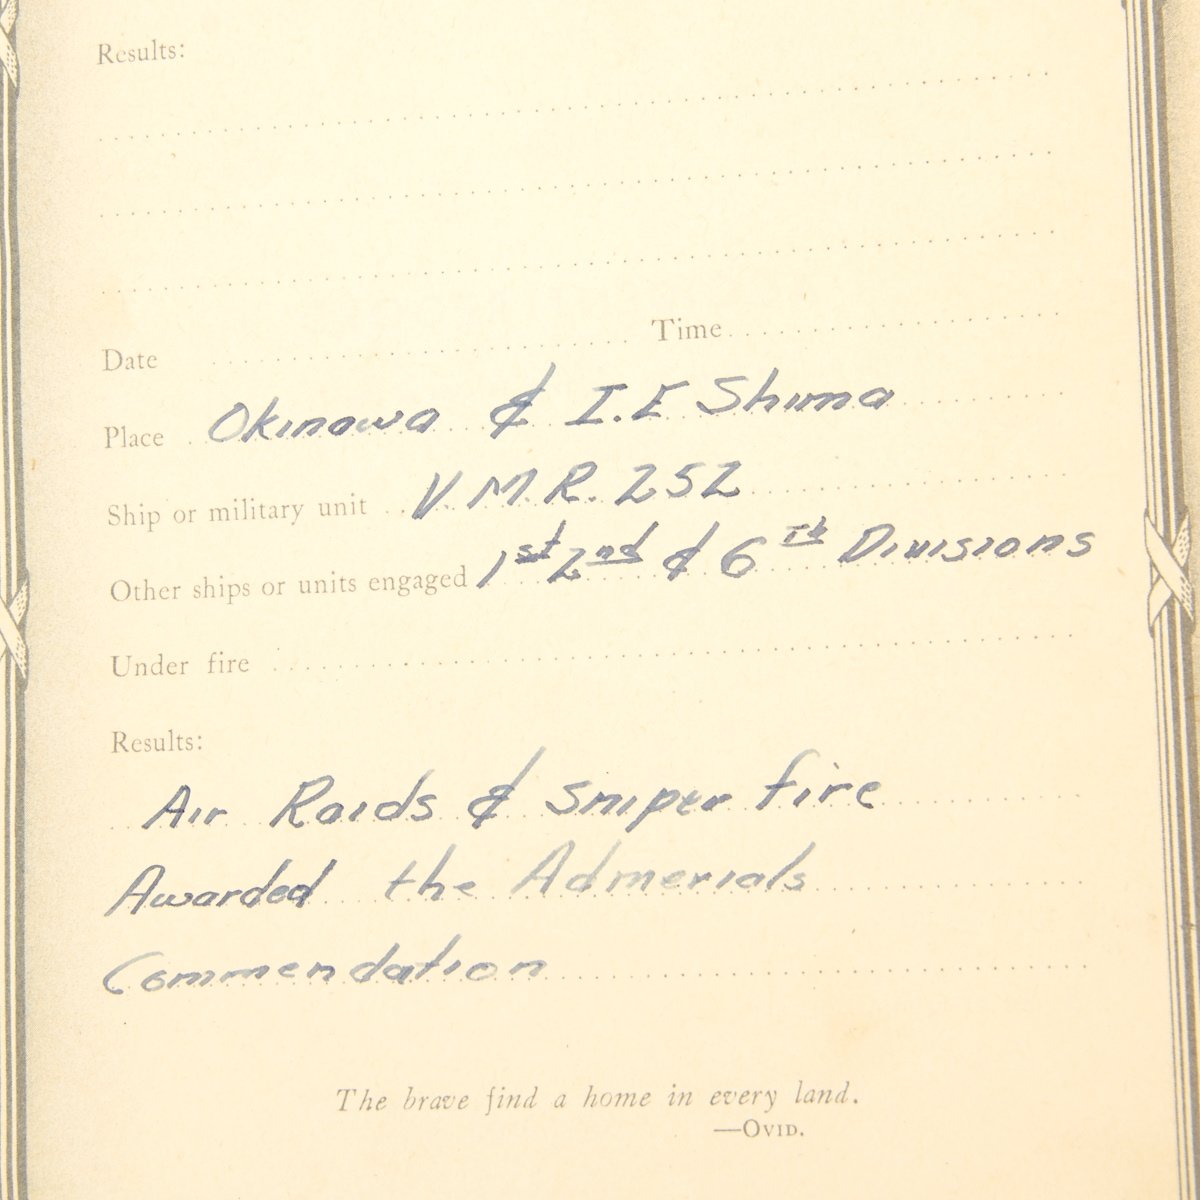 Results:
Date Time
Place Okinawa & I.E Shima
Ship or military unit V.M.R. 252
Other ships or units engaged 1st 2nd & 6th Divisions
Under fire
Results:
Air Raids & Sniper fire
Awarded the Admerials
Commendation
The brave find a home in every land.
—OVID.